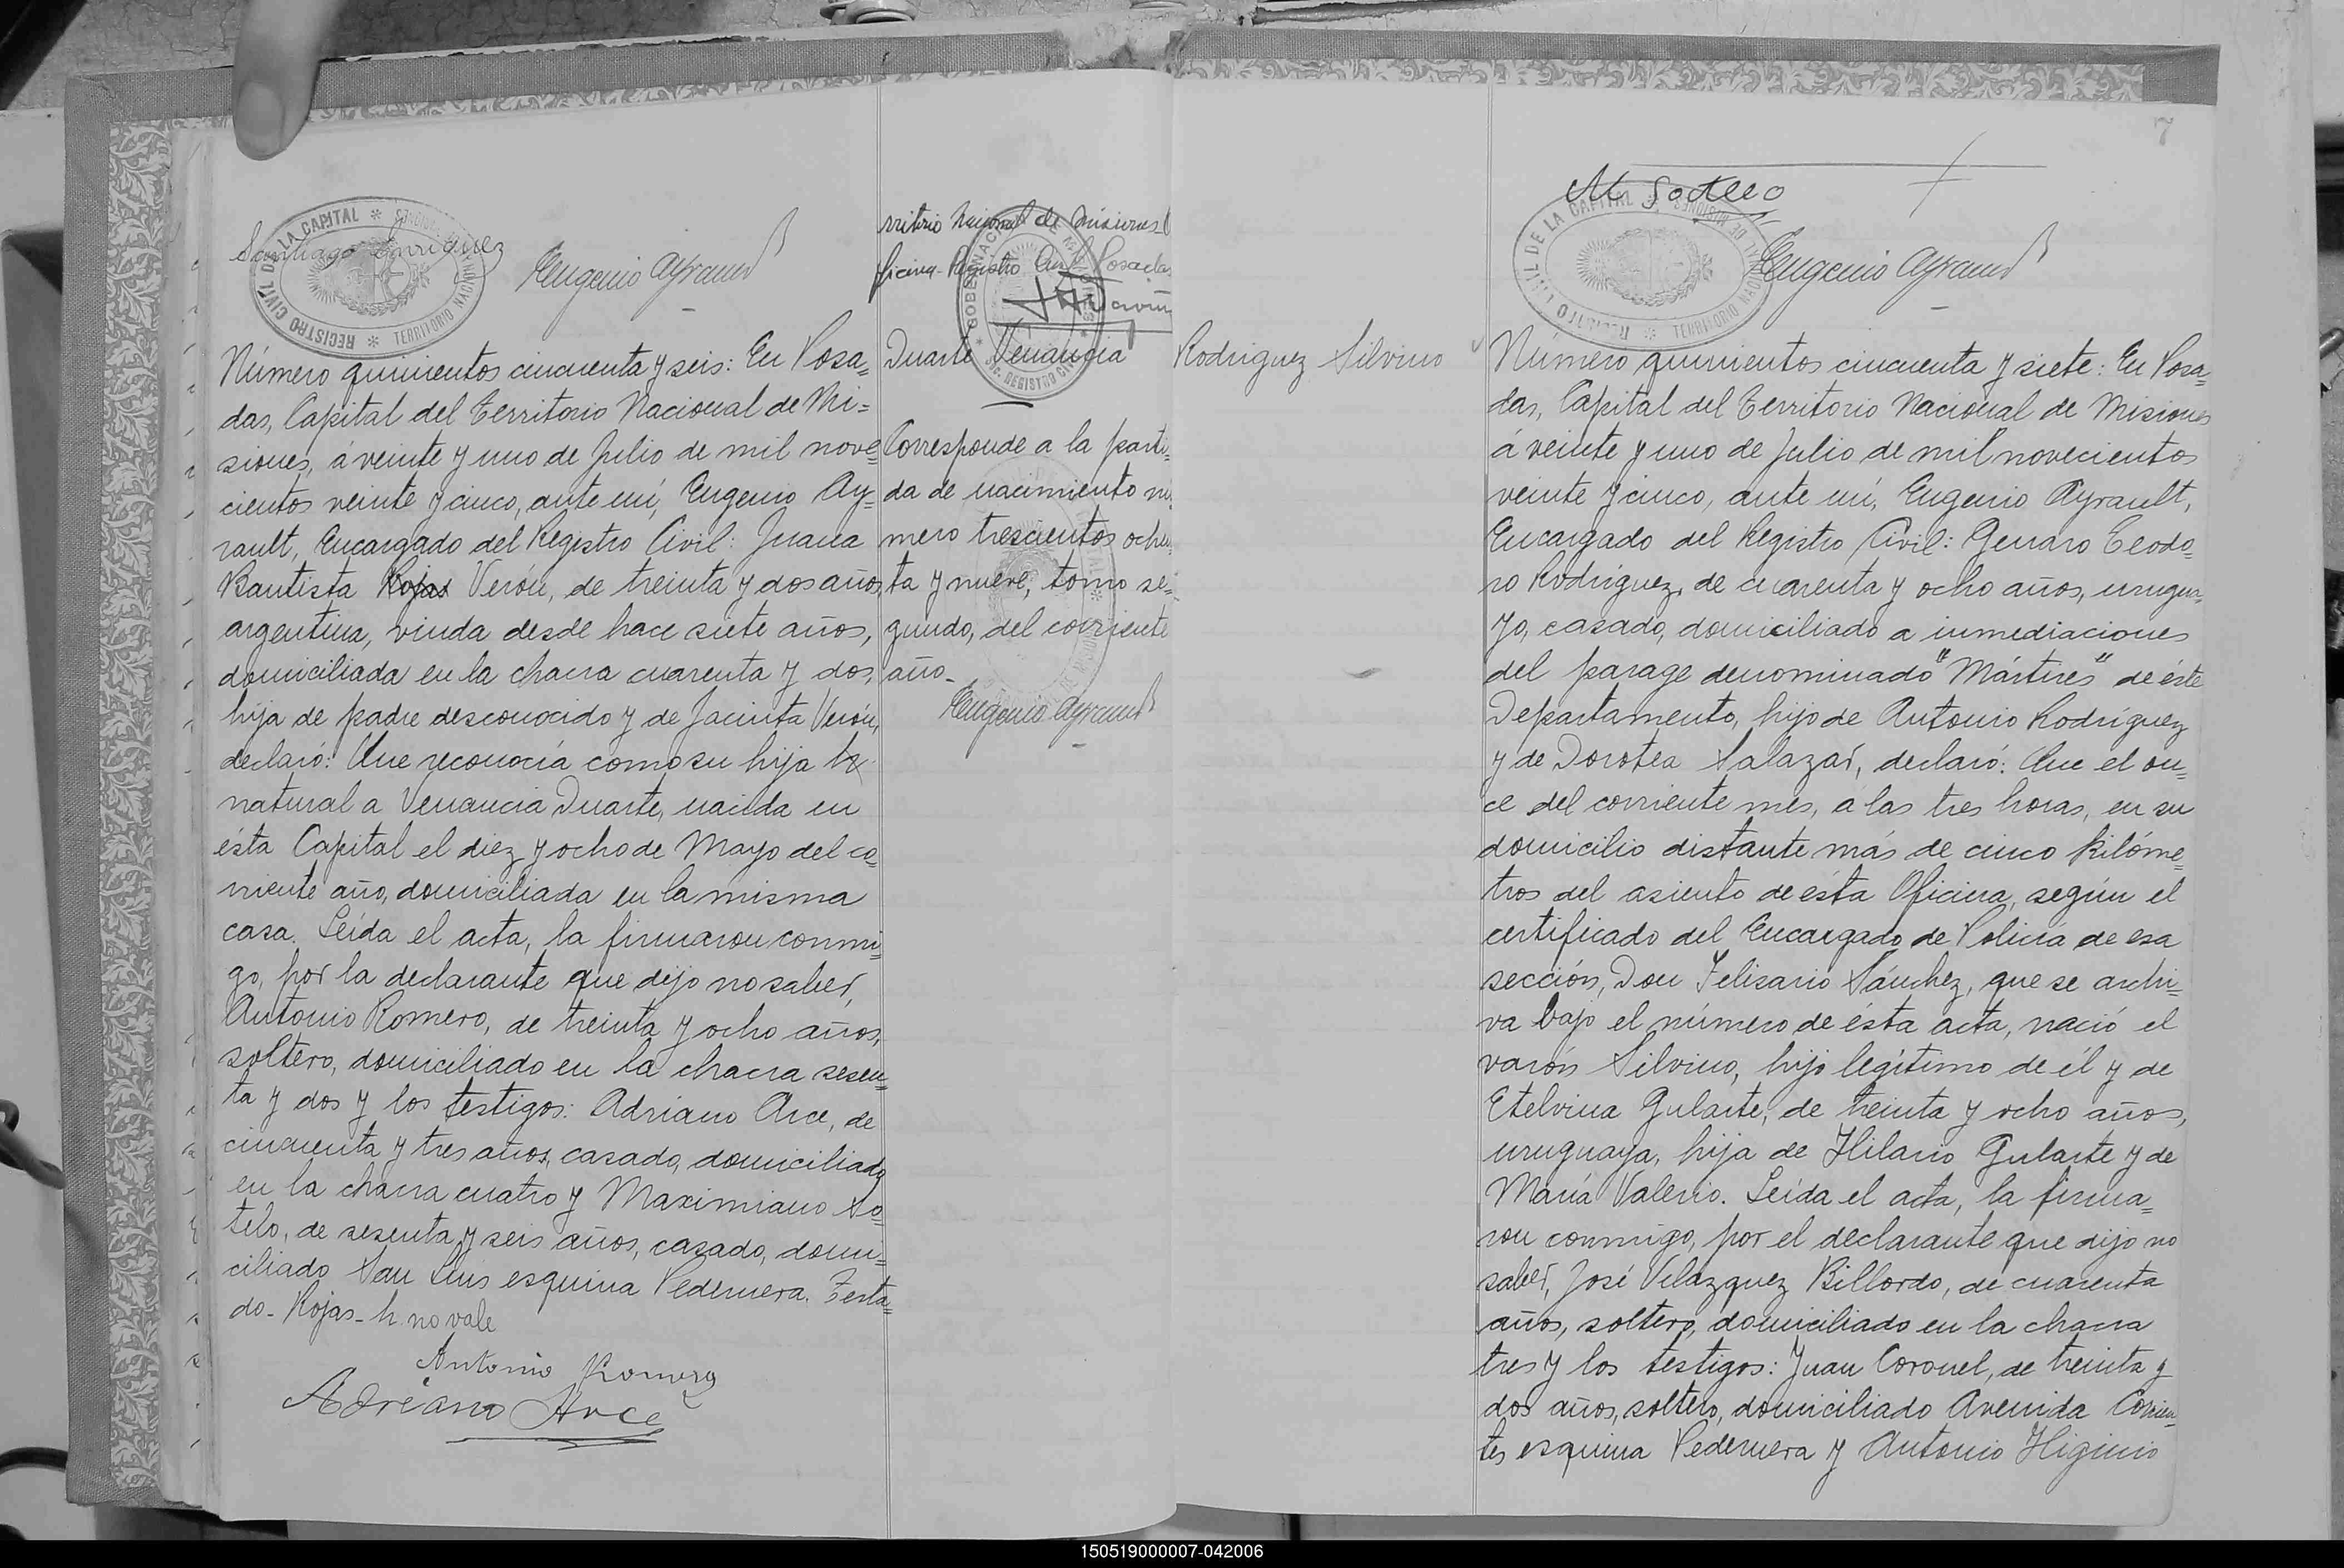 Santiago Enriquez
Eugenio Ayrault
REGISTRO CIVIL DE LA CAPITAL * TERRITORIO NACIONAL DE MISIONES *
Número quinientos cincuenta y seis: En Posa=
das, Capital del Territorio Nacional de Mi=
siones, á veinte y uno de Julio de mil nove=
cientos veinte y cinco, ante mí, Eugenio Ay=
rault, Encargado del Registro Civil: Juana
Bautista Rojas Verón, de treinta y dos años,
argentina, viuda desde hace siete años,
domiciliada en la chacra cuarenta y dos,
hija de padre desconocido y de Jacinta Verón,
declaró: Que reconocía como su hija h
natural a Venancia Duarte, nacida en
ésta Capital el diez y ocho de Mayo del co=
rriente año, domiciliada en la misma
casa. Leída el acta, la firmaron conmi=
go, por la declarante que dijo no saber,
Antonio Romero, de treinta y ocho años,
soltero, domiciliado en la chacra sesen=
ta y dos y los testigos: Adriano Arce, de
cincuenta y tres años, casado, domiciliado
en la chacra cuatro y Maximiano So=
telo, de sesenta y seis años, casado, domi=
ciliado San Luis esquina Pedernera. Testa=
do - Rojas - h. no vale
Antonio Romero
Adriano Arce
rritorio Nacional de Misiones
ficina Registro Civil Posadas
Duarte Venancia
Corresponde a la parti=
da de nacimiento nú
mero trescientos ochen
ta y nueve, tomo se=
gundo, del corriente
año.
Eugenio Ayrault
Rodriguez Silvino
7
M Sotelo
REGISTRO CIVIL DE LA CAPITAL * TERRITORIO NACIONAL DE MISIONES *
Eugenio Ayrault
Número quinientos cincuenta y siete: En Posa=
das, Capital del Territorio Nacional de Misiones
á veinte y uno de Julio de mil novecientos
veinte y cinco, ante mí, Eugenio Ayrault,
Encargado del Registro Civil: Genaro Teodo=
ro Rodríguez, de cuarenta y ocho años, urugua=
yo, casado, domiciliado a inmediaciones
del parage denominado "Mártires" de éste
Departamento, hijo de Antonio Rodríguez
y de Dorotea Salazar, declaró: Que el on=
ce del corriente mes, á las tres horas, en su
domicilio distante más de cinco kilóme=
tros del asiento de ésta Oficina, según el
certificado del Encargado de Policía de esa
sección, Don Felisario Sánchez, que se archi=
va bajo el número de ésta acta, nació el
varón Silvino, hijo legítimo de él y de
Etelvina Gularte, de treinta y ocho años,
uruguaya, hija de Hilario Gularte y de
María Valerio. Leída el acta, la firma=
ron conmigo, por el declarante que dijo no
saber, José Velazquez Billordo, de cuarenta
años, soltero, domiciliado en la chacra
tres y los testigos: Juan Coronel, de treinta y
dos años, soltero, domiciliado Avenida Corrien=
tes esquina Pedernera y Antonio Higinio
150519000007-042006